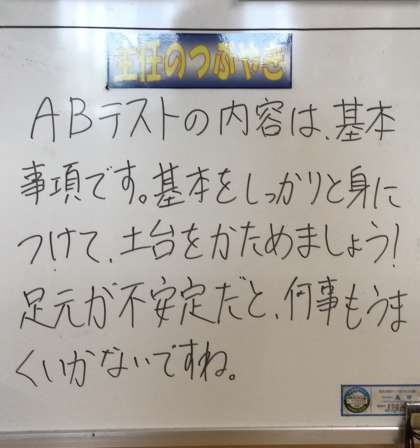 主任のつぶやき
ABテストの内容は、基本
事項です。基本をしっかりと身に
つけて、土台をかためましょう!
足元が不安定だと、何事もうま
くいかないですね。